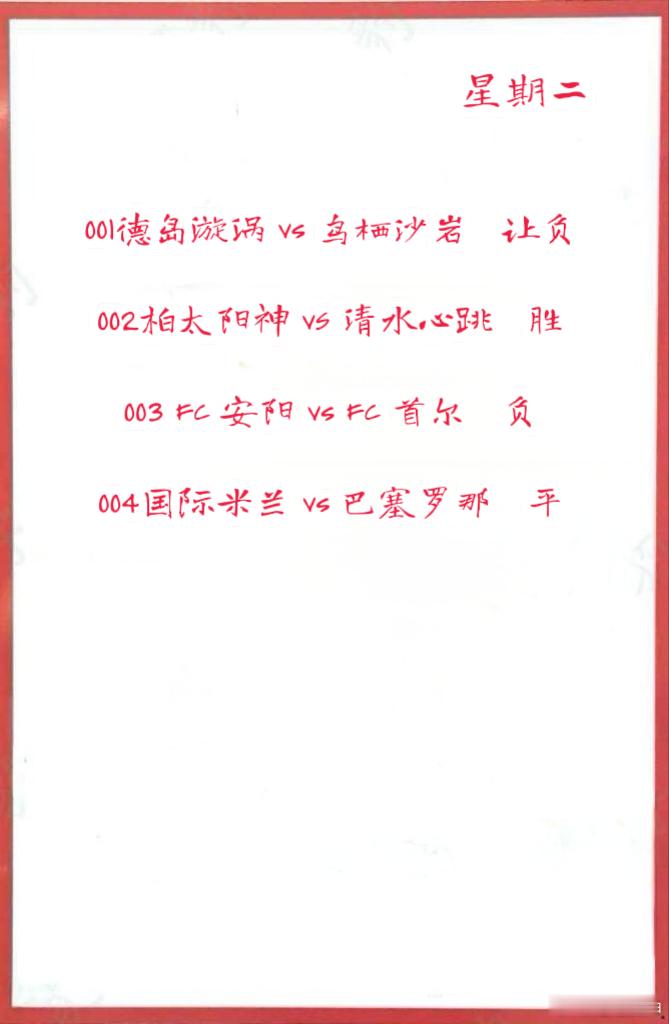 星期二
001德岛漩涡 vs 鸟栖沙岩 让负
002柏太阳神 vs 清水心跳 胜
003 FC 安阳 vs FC 首尔 负
004国际米兰 vs 巴塞罗那 平